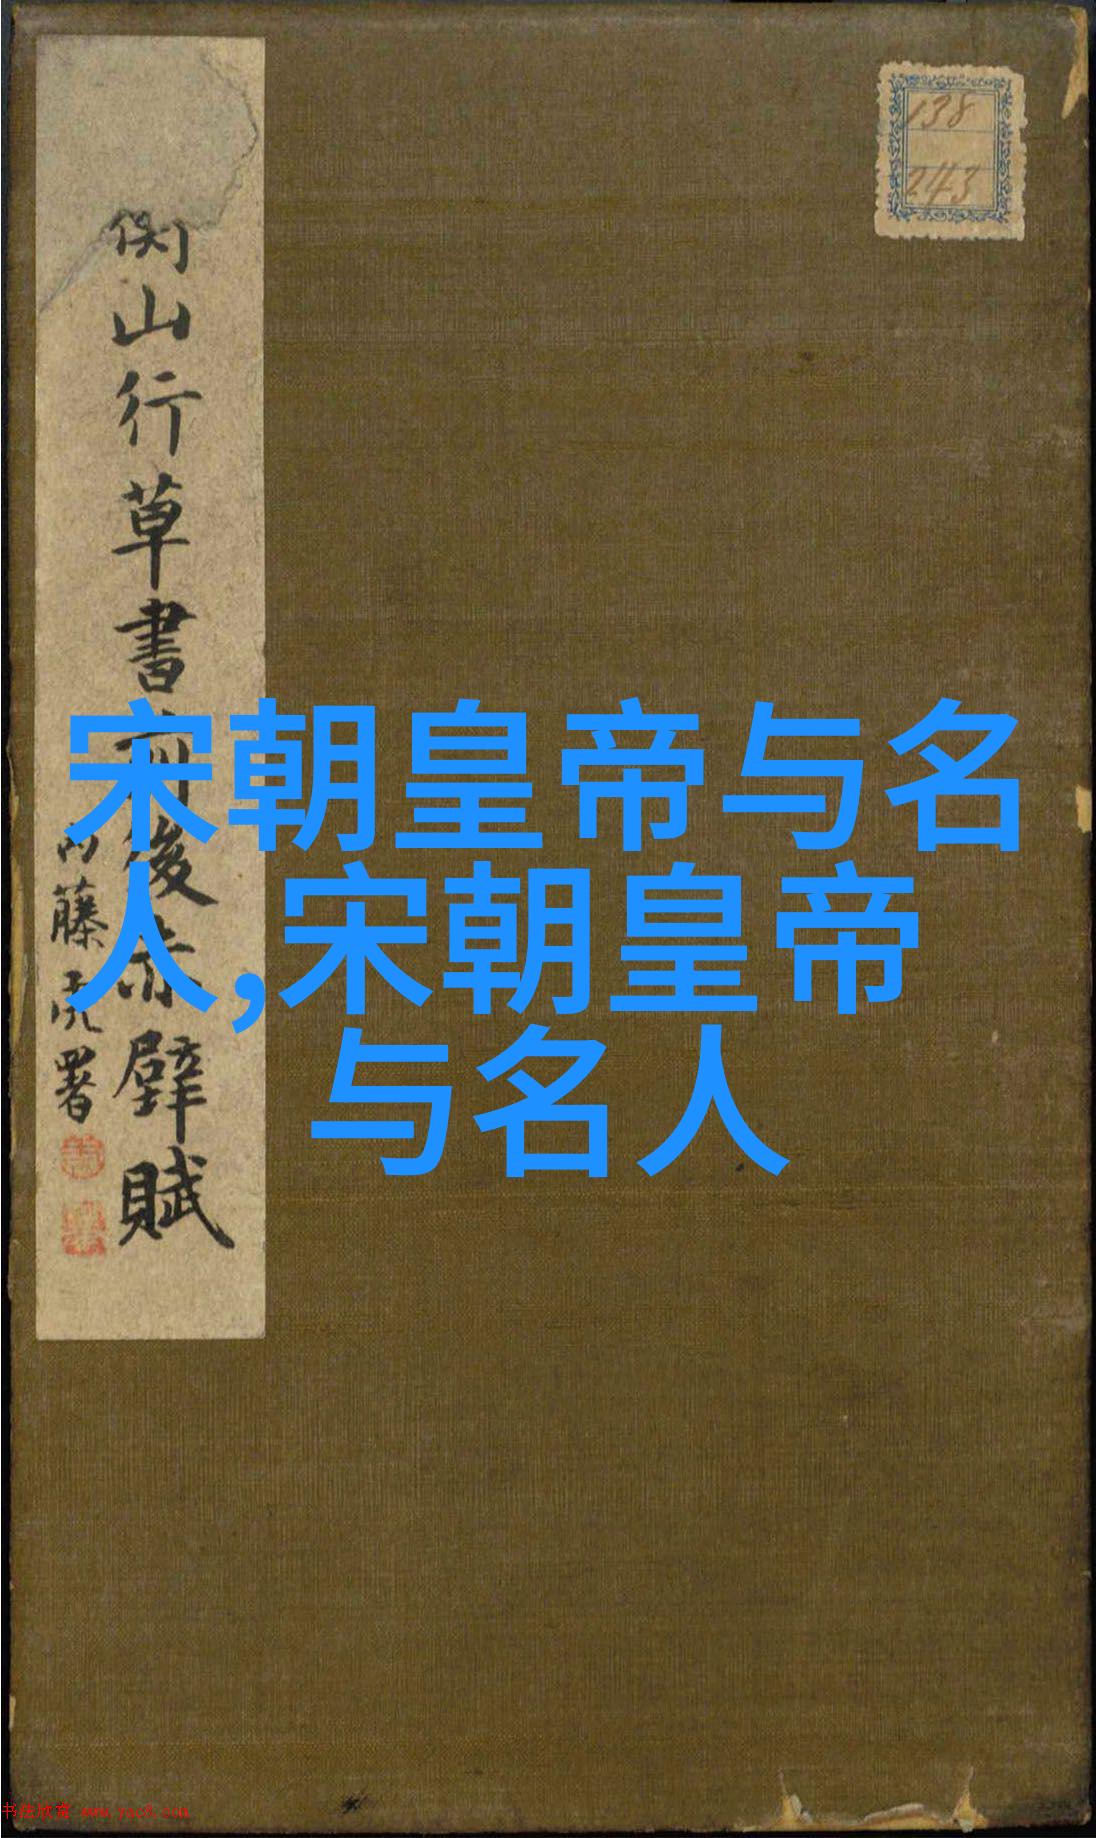 138
243
衡山行草書前後赤壁賦
内藤虎署
宋朝皇帝与名
人,宋朝皇帝
与名人
书法欣赏 www.yac8.com